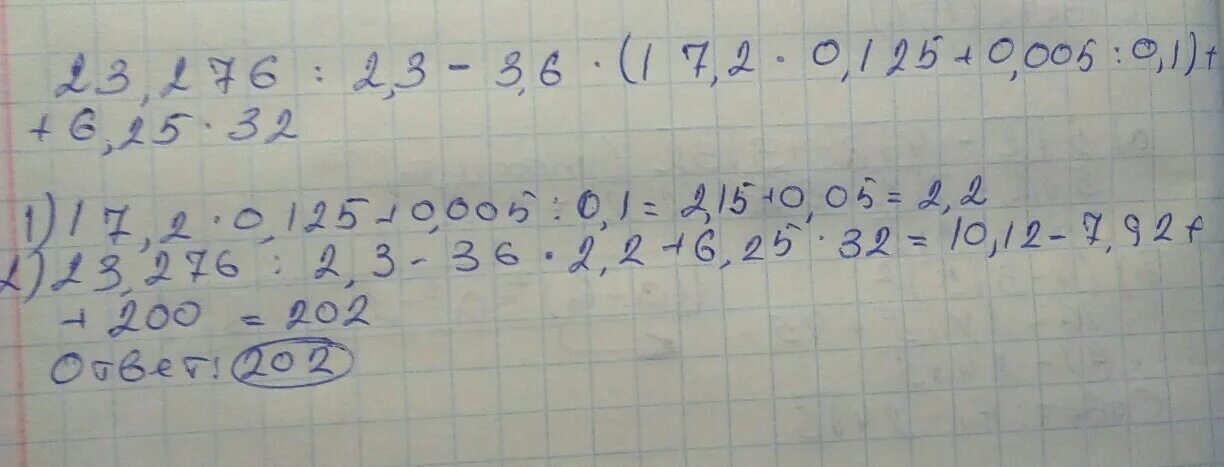 23,276 : 2,3 - 3,6 · (17,2 · 0,125 + 0,005 : 0,1) +
+ 6,25 · 32
1) 17,2 · 0,125 + 0,005 : 0,1 = 2,15 + 0,05 = 2,2
2) 23,276 : 2,3 - 36 · 2,2 + 6,25 · 32 = 10,12 - 7,92 +
+ 200 = 202
Ответ: 202